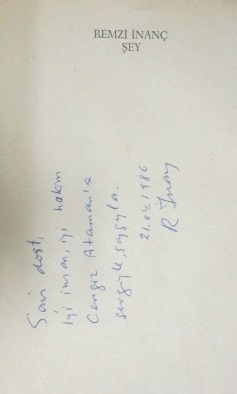 REMZİ İNANÇ
ŞEY
Sayın dost,
iyi insan, iyi hakem
Cengiz Ataman'a
sevgiyle, saygıyla.
21.04.1986
R İnanç